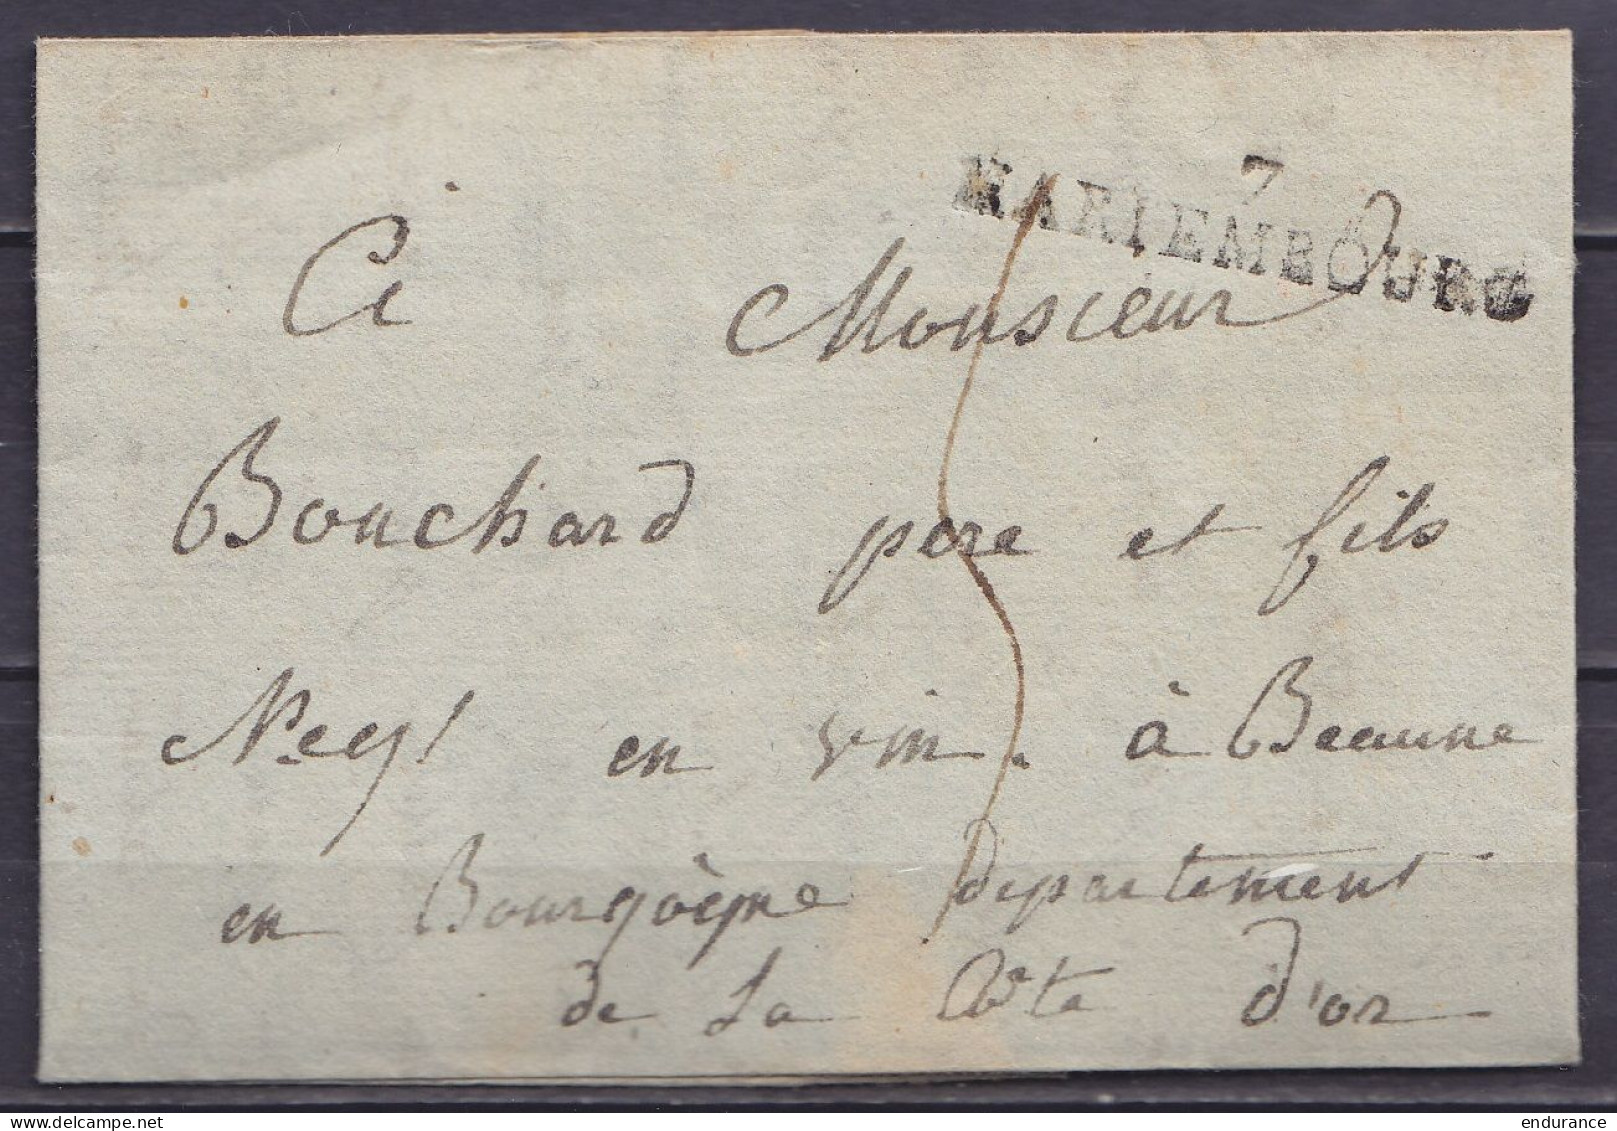 7
MARIEMBOURG
A Monsieur
Bouchard pere et fils
Neg.t en vin. à Beaune
en Bourgoègne departement
de La Cote d'or
delcampe.net
endurance